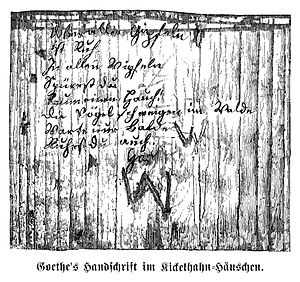 Über allen Gipfeln
ist Ruh
In allen Wipfeln
Spürest du
Kaum einen Hauch!
Die Vögel schweigen im Walde
Warte nur balde
Ruhest du auch.
W
Goethe's Handschrift im Kickelhahn-Häuschen.